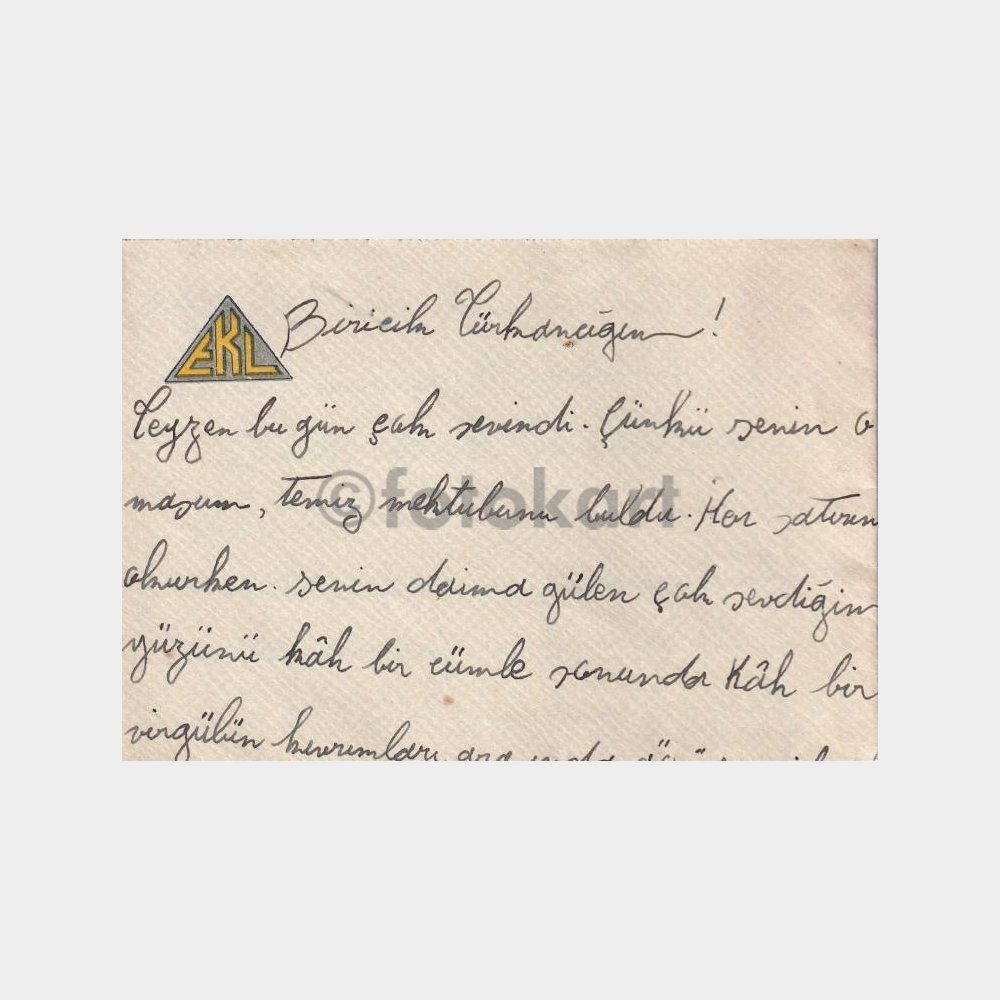 EKL
Biricik Türkancığım!
Teyzen bu gün çok sevindi. Çünkü senin o
masum, temiz mektubunu buldu. Her satırını
okurken. senin daima gülen çok sevdiğim
yüzünü kâh bir cümle sonunda Kâh bir
virgülün kıvrımları arasında
©fotokart